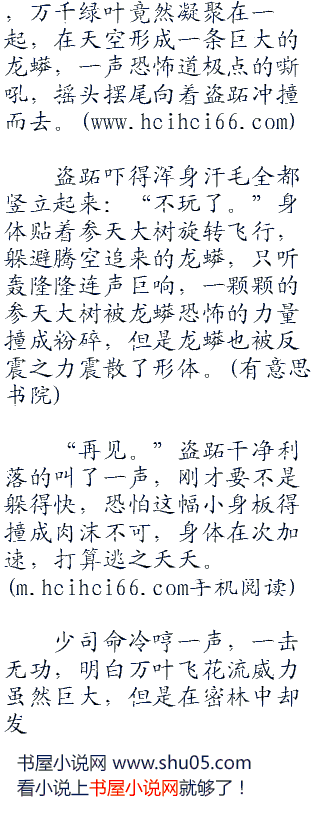 ，万千绿叶竟然凝聚在一
起，在天空形成一条巨大的
龙蟒，一声恐怖道极点的嘶
吼，摇头摆尾向着盗跖冲撞
而去。(www.hcihci66.com)
盗跖吓得浑身汗毛全都
竖立起来：“不玩了。”身
体贴着参天大树旋转飞行，
躲避腾空追来的龙蟒，只听
轰隆隆连声巨响，一颗颗的
参天大树被龙蟒恐怖的力量
撞成粉碎，但是龙蟒也被反
震之力震散了形体。(有意思
书院)
“再见。”盗跖干净利
落的叫了一声，刚才要不是
躲得快，恐怕这幅小身板得
撞成肉沫不可，身体在次加
速，打算逃之夭夭。
(m.hcihci66.com手机阅读)
少司命冷哼一声，一击
无功，明白万叶飞花流威力
虽然巨大，但是在密林中却
发
书屋小说网 www.shu05.com
看小说上书屋小说网就够了！